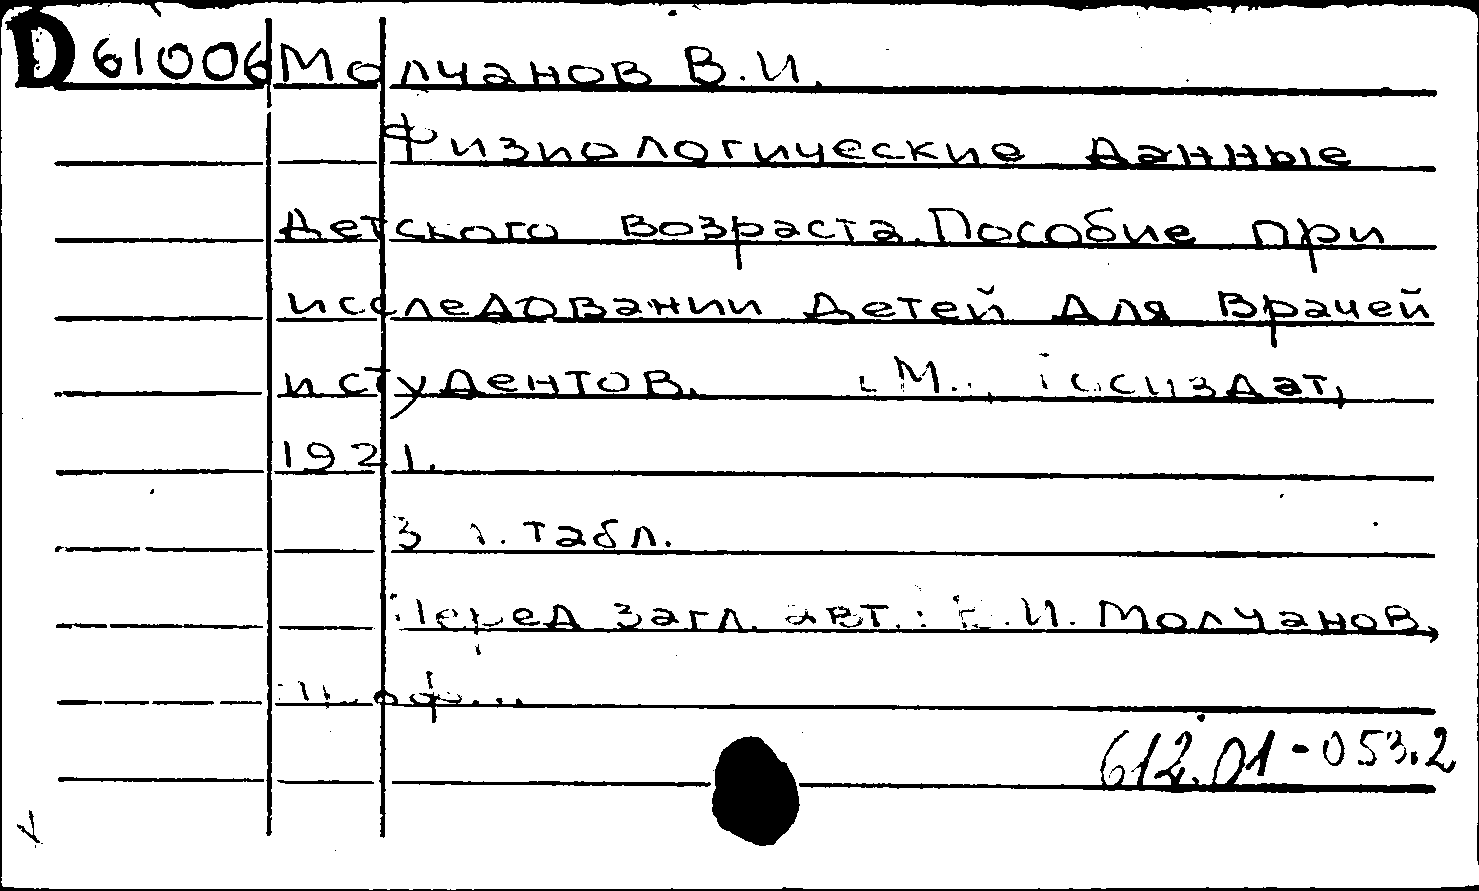 D 61006 Молчанов В.И.
Физиологические данные
детского возраста. Пособие при
исследовании детей для врачей
и студентов. М., Госиздат,
1921.
3 л. табл.
Перед загл. авт.: В.И. Молчанов,
проф...
612.01-053.2